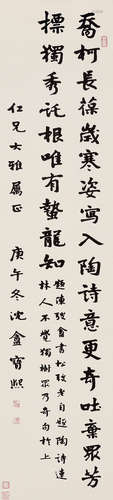 喬柯長葆歲寒姿寫入陶詩意更奇吐棄眾芳
標獨秀託根唯有蟄龍知
題陳弢盦畫松弢老自題陶詩連
林人不覺獨樹眾乃奇句於上
仁兄大雅屬正
庚午冬沈盦寶熙